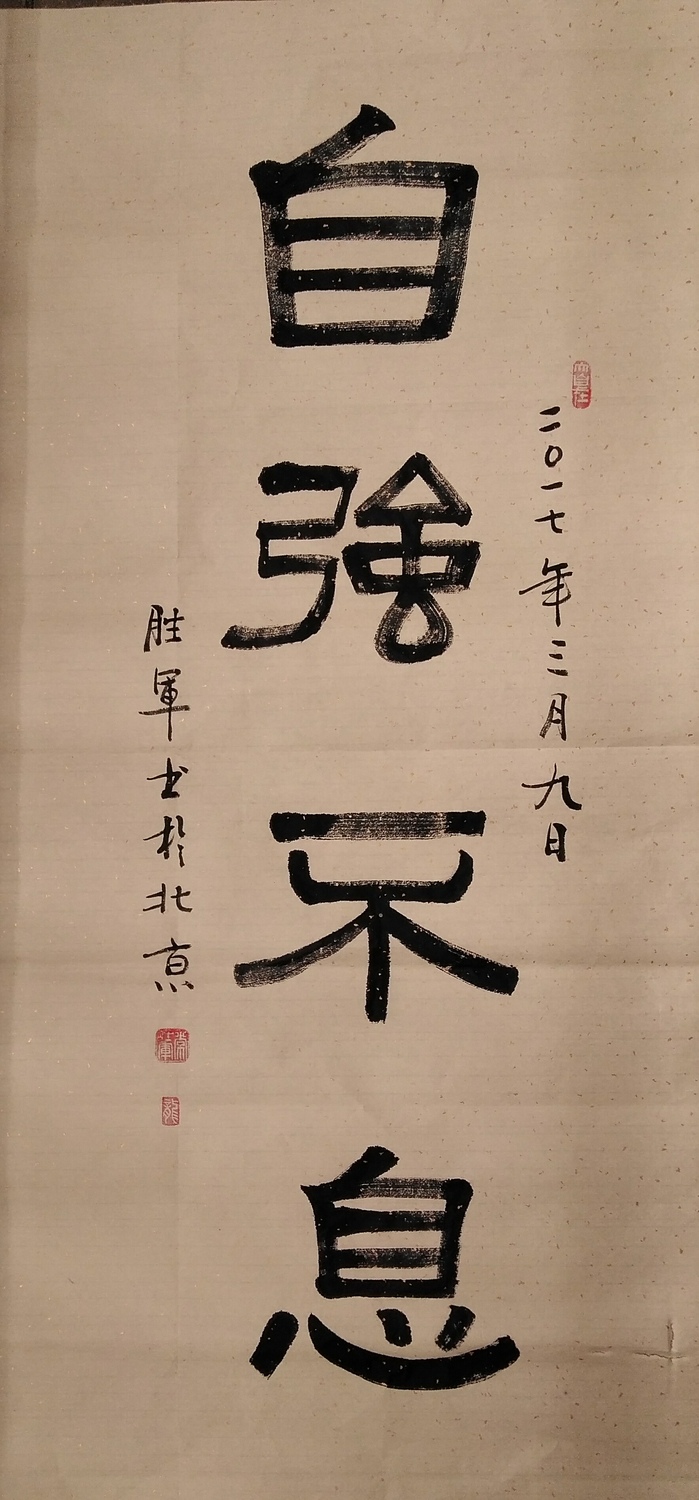 二〇一七年三月九日
自強不息
胜軍书於北京